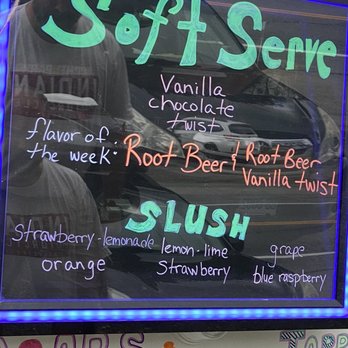 Soft Serve
Vanilla
chocolate
twist
flavor of
the week:
Root Beer & Root Beer
Vanilla twist
SLUSH
Strawberry-lemonade lemon-lime grape
orange Strawberry blue raspberry